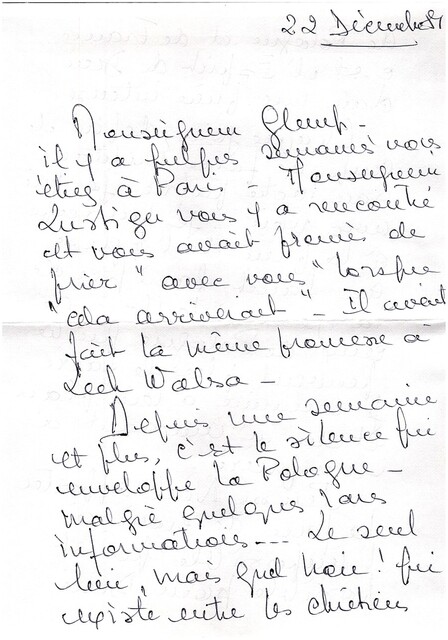 22 Décembre 81
Monseigneur Glemp -
il y a quelques semaines vous
étiez à Paris - Monseigneur
Lustiger vous y a rencontré
et vous avait promis de
prier "avec vous" lorsque
"cela arriverait" - Il avait
fait la même promesse à
Lech Walesa -
Depuis une semaine
et plus, c'est le silence qui
enveloppe la Pologne -
malgré quelques
informations --- Le seul
lien, mais quel lien! qui
existe entre les chrétiens